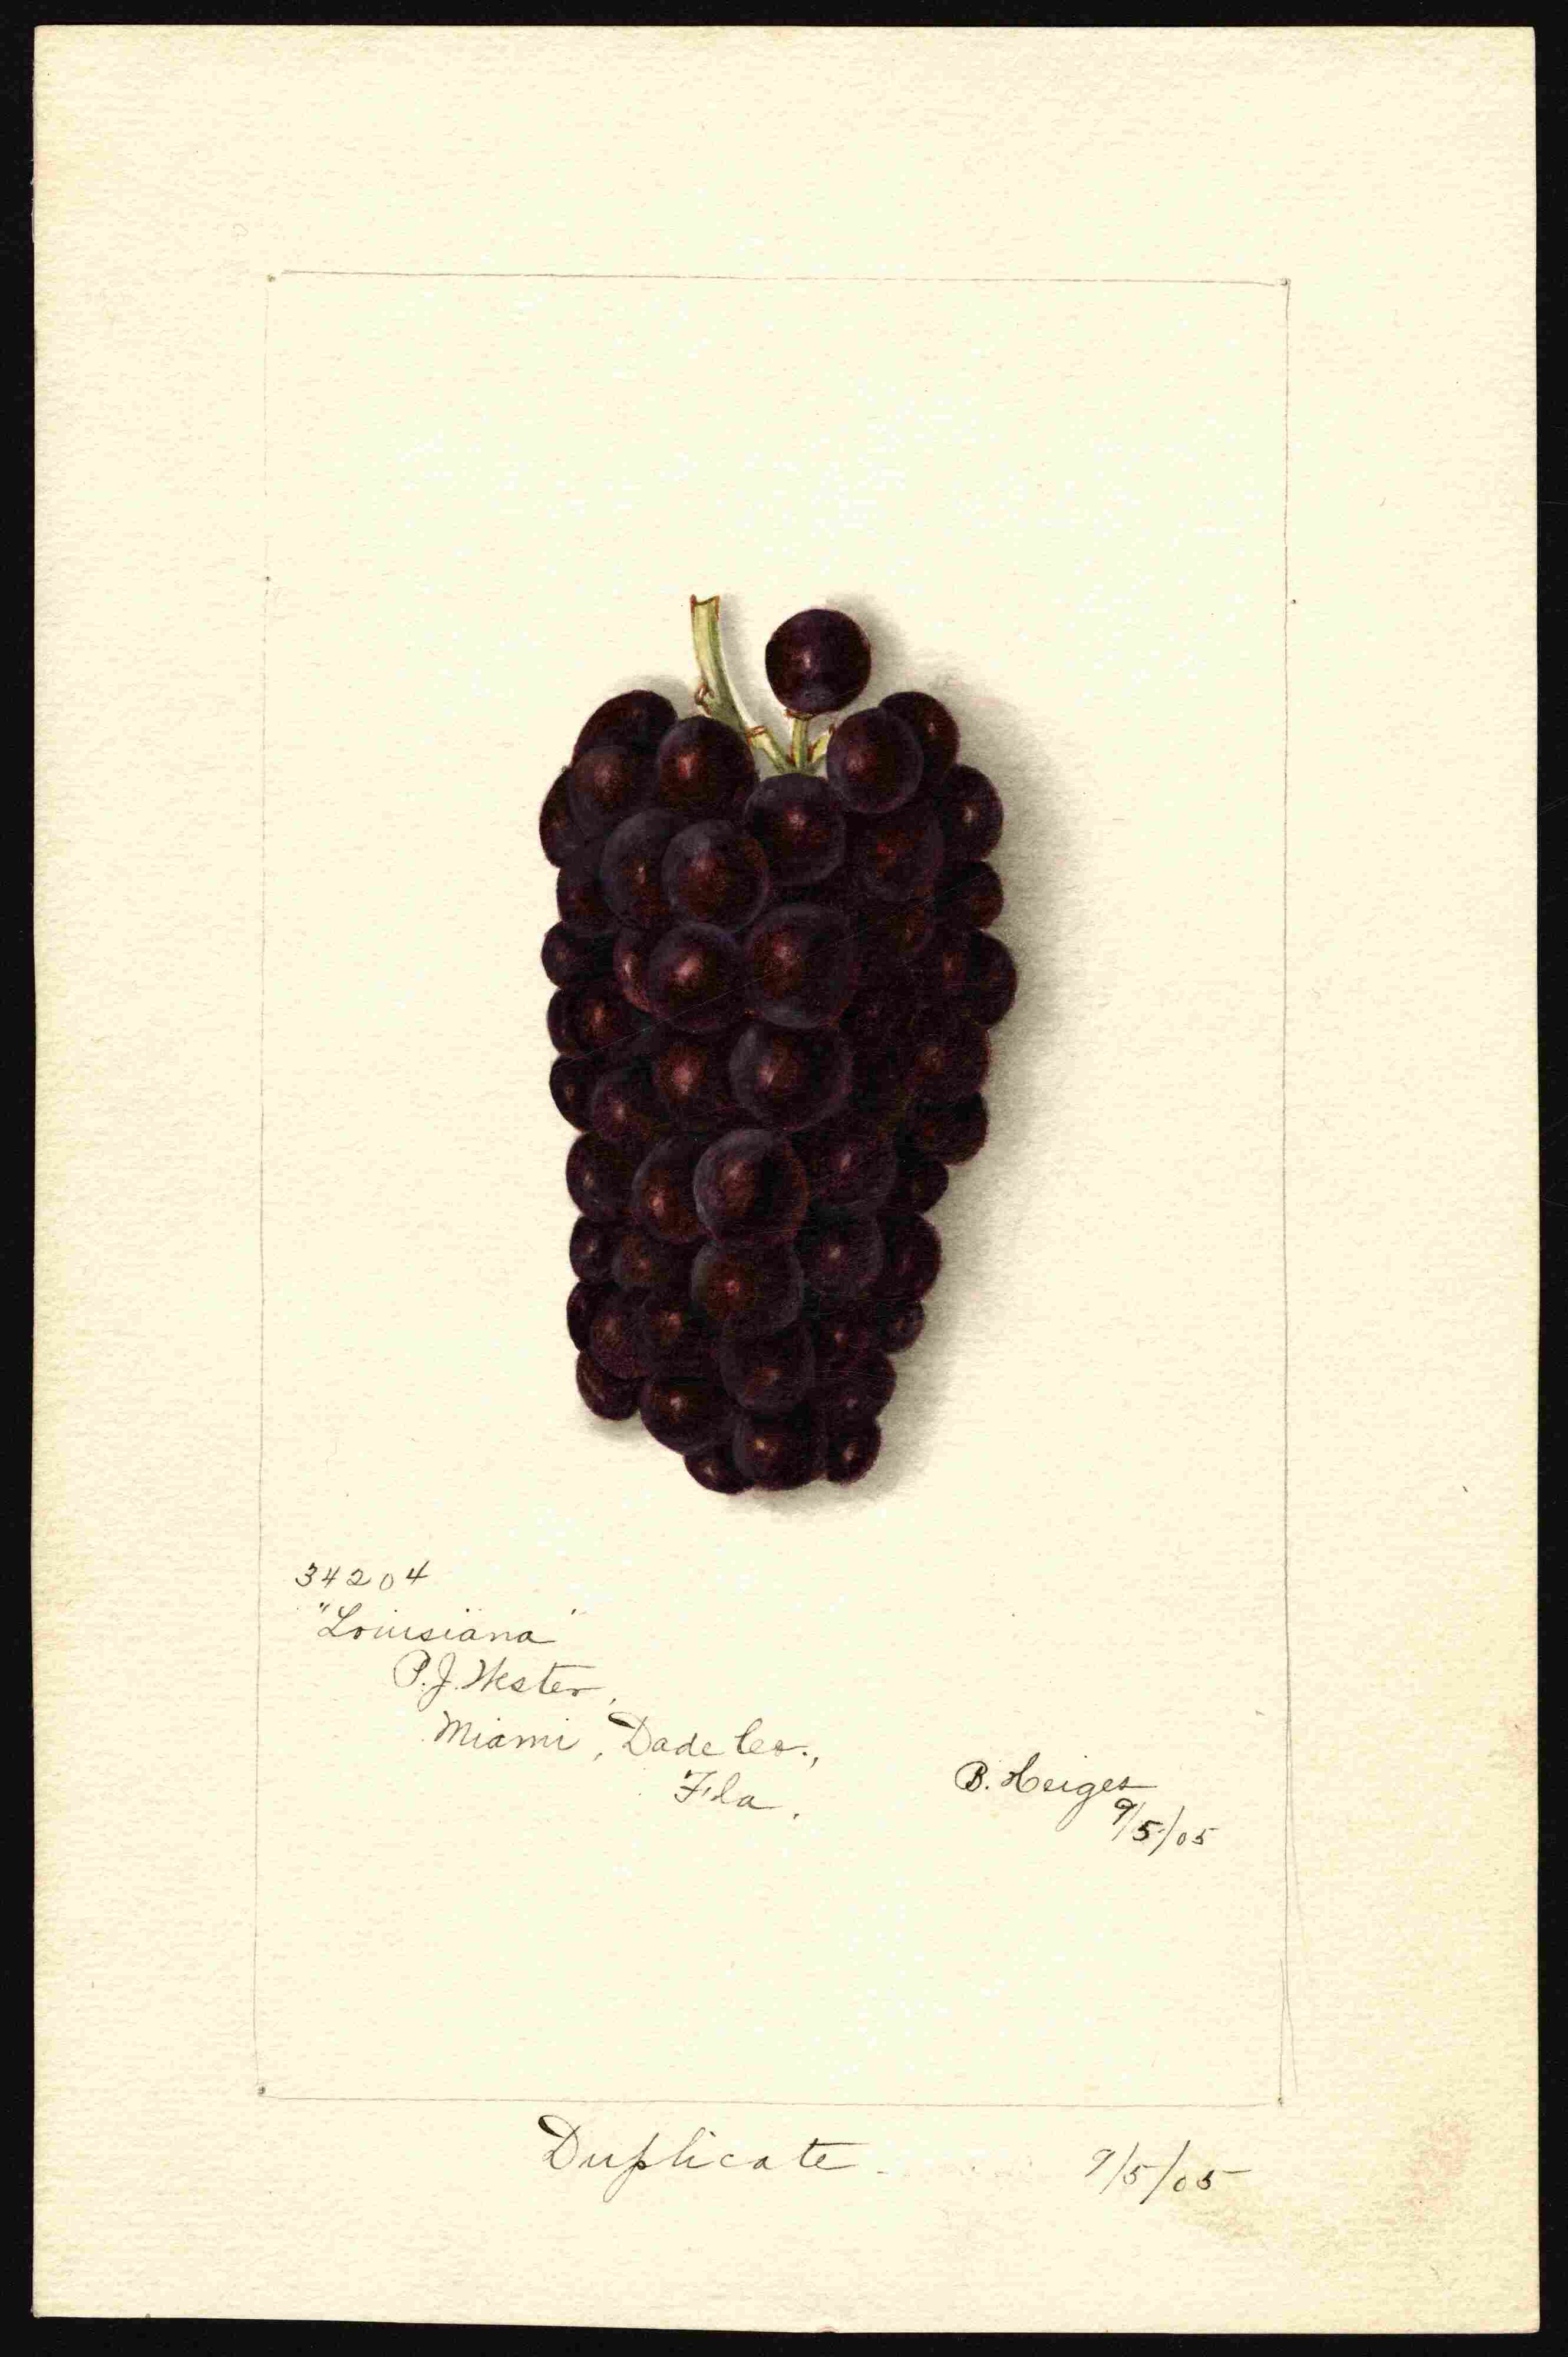 34204
"Louisiana"
P.J. Wester,
Miami, Dade Co.,
Fla.
B. Heiges
9/5/05
Duplicate 9/5/05